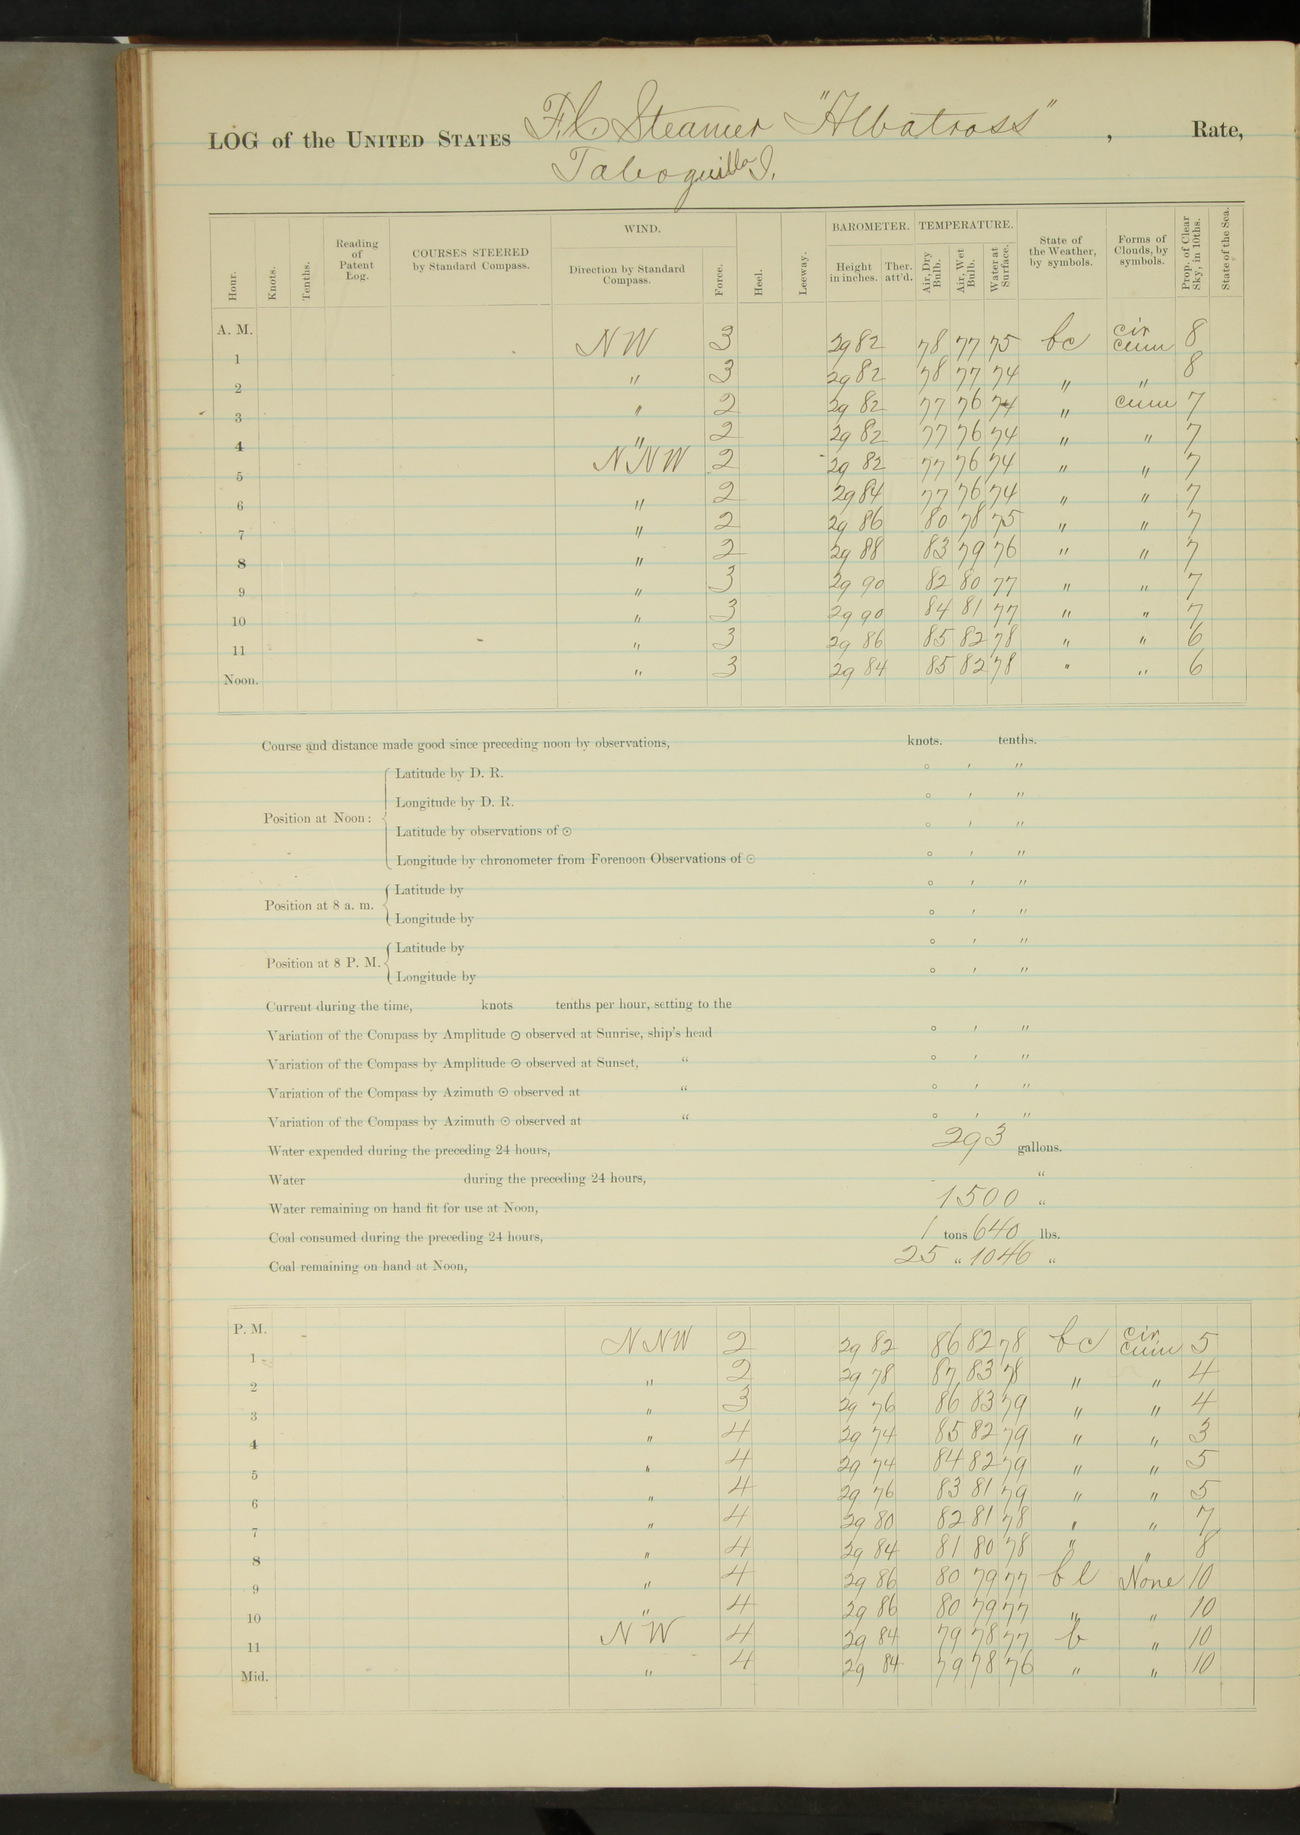 LOG of the UNITED STATES F.C. Steamer "Albatross", Rate,
Taboguilla I.
Hour. Knots. Tenths. Reading of Patent Log. COURSES STEERED by Standard Compass. WIND. Direction by Standard Compass. Force. Heel. Leeway. BAROMETER. Height in inches. Ther. att'd. TEMPERATURE. Air, Dry Bulb. Air, Wet Bulb. Water at Surface. State of the Weather, by symbols. Forms of Clouds, by symbols. Prop. of Clear Sky, in 10ths. State of the Sea.
A. M.
1 NW 3 29 82 78 77 75 bc cir cum 8
2 " 3 29 82 78 77 74 " " 8
3 " 2 29 82 77 76 74 " cum 7
4 " 2 29 82 77 76 74 " " 7
5 NNW 2 29 82 77 76 74 " " 7
6 " 2 29 84 77 76 74 " " 7
7 " 2 29 86 80 78 75 " " 7
8 " 2 29 88 83 79 76 " " 7
9 " 3 29 90 82 80 77 " " 7
10 " 3 29 90 84 81 77 " " 7
11 " 3 29 86 85 82 78 " " 6
Noon. " 3 29 84 85 82 78 " " 6
Course and distance made good since preceding noon by observations, knots. tenths.
Position at Noon: Latitude by D. R. ° ′ ″
Longitude by D. R. ° ′ ″
Latitude by observations of ⊙ ° ′ ″
Longitude by chronometer from Forenoon Observations of ⊙ ° ′ ″
Position at 8 a. m. Latitude by ° ′ ″
Longitude by ° ′ ″
Position at 8 P. M. Latitude by ° ′ ″
Longitude by ° ′ ″
Current during the time, knots tenths per hour, setting to the
Variation of the Compass by Amplitude ⊙ observed at Sunrise, ship's head ° ′ ″
Variation of the Compass by Amplitude ⊙ observed at Sunset, " ° ′ ″
Variation of the Compass by Azimuth ⊙ observed at " ° ′ ″
Variation of the Compass by Azimuth ⊙ observed at " ° ′ ″
Water expended during the preceding 24 hours, 293 gallons.
Water during the preceding 24 hours, "
Water remaining on hand fit for use at Noon, 1500 "
Coal consumed during the preceding 24 hours, 1 tons 640 lbs.
Coal remaining on hand at Noon, 25 " 1046 "
P. M.
1 NNW 2 29 82 86 82 78 bc cir cum 5
2 " 2 29 78 87 83 78 " " 4
3 " 3 29 76 86 83 79 " " 4
4 " 4 29 74 85 82 79 " " 3
5 " 4 29 74 84 82 79 " " 5
6 " 4 29 76 83 81 79 " " 5
7 " 4 29 80 82 81 78 " " 7
8 " 4 29 84 81 80 78 " " 8
9 " 4 29 86 80 79 77 bl None 10
10 " 4 29 86 80 79 77 " " 10
11 NW 4 29 84 79 78 77 b " 10
Mid. " 4 29 84 79 78 76 " " 10